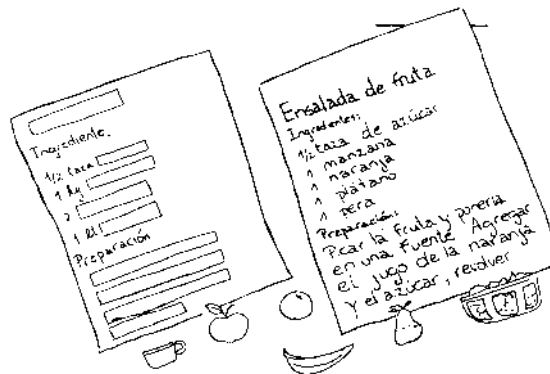 Ingrediente.
1/2 taza
1 kg
2
1 lt
Preparación
Ensalada de fruta
Ingredientes:
1/2 taza de azúcar
1 manzana
1 naranja
1 plátano
1 pera
Preparación:
Picar la fruta y ponerla
en una fuente. Agregar
el jugo de la naranja
y el azúcar, revolver